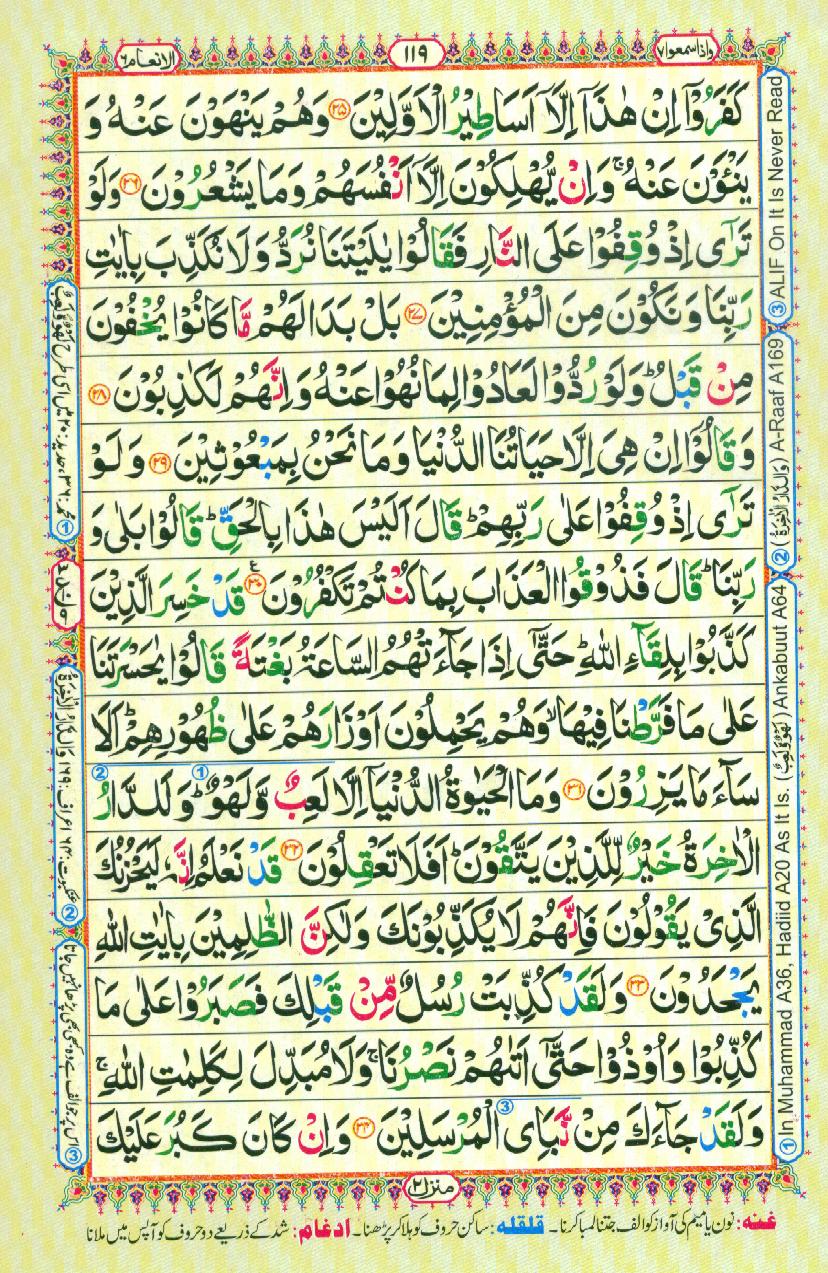 واذاسمعوا٧
١١٩
الانعام٦
كَفَرُوْۤا اِنْ هٰذَاۤ اِلَّاۤ اَسَاطِيْرُ الْاَوَّلِيْنَ ﴿٢٥﴾ وَهُمْ يَنْهَوْنَ عَنْهُ وَ
يَنْـَٔوْنَ عَنْهُ ۚ وَاِنْ يُّهْلِكُوْنَ اِلَّاۤ اَنْفُسَهُمْ وَمَا يَشْعُرُوْنَ ﴿٢٦﴾ وَلَوْ
تَرٰٓى اِذْ وُقِفُوْا عَلَى النَّارِ فَقَالُوْا يٰلَيْتَنَا نُرَدُّ وَلَا نُكَذِّبَ بِاٰيٰتِ
رَبِّنَا وَنَكُوْنَ مِنَ الْمُؤْمِنِيْنَ ﴿٢٧﴾ بَلْ بَدَا لَهُمْ مَّا كَانُوْا يُخْفُوْنَ
مِنْ قَبْلُ ؕ وَلَوْ رُدُّوْا لَعَادُوْا لِمَا نُهُوْا عَنْهُ وَاِنَّهُمْ لَكٰذِبُوْنَ ﴿٢٨﴾
وَقَالُوْۤا اِنْ هِىَ اِلَّا حَيَاتُنَا الدُّنْيَا وَمَا نَحْنُ بِمَبْعُوْثِيْنَ ﴿٢٩﴾ وَلَوْ
تَرٰٓى اِذْ وُقِفُوْا عَلٰى رَبِّهِمْ ؕ قَالَ اَلَيْسَ هٰذَا بِالْحَقِّ ؕ قَالُوْا بَلٰى وَ
رَبِّنَا ؕ قَالَ فَذُوْقُوا الْعَذَابَ بِمَا كُنْتُمْ تَكْفُرُوْنَ ﴿٣٠﴾ ع قَدْ خَسِرَ الَّذِيْنَ
كَذَّبُوْا بِلِقَآءِ اللّٰهِ ؕ حَتّٰٓى اِذَا جَآءَتْهُمُ السَّاعَةُ بَغْتَةً قَالُوْا يٰحَسْرَتَنَا
عَلٰى مَا فَرَّطْنَا فِيْهَا ۙ وَهُمْ يَحْمِلُوْنَ اَوْزَارَهُمْ عَلٰى ظُهُوْرِهِمْ ؕ اَلَا
سَآءَ مَا يَزِرُوْنَ ﴿٣١﴾ وَمَا الْحَيٰوةُ الدُّنْيَاۤ اِلَّا لَعِبٌ وَّلَهْوٌ ؕ ① وَلَلدَّارُ ②
الْاٰخِرَةُ خَيْرٌ لِّلَّذِيْنَ يَتَّقُوْنَ ؕ اَفَلَا تَعْقِلُوْنَ ﴿٣٢﴾ قَدْ نَعْلَمُ اِنَّهٗ لَيَحْزُنُكَ
الَّذِىْ يَقُوْلُوْنَ فَاِنَّهُمْ لَا يُكَذِّبُوْنَكَ وَلٰكِنَّ الظّٰلِمِيْنَ بِاٰيٰتِ اللّٰهِ
يَجْحَدُوْنَ ﴿٣٣﴾ وَلَقَدْ كُذِّبَتْ رُسُلٌ مِّنْ قَبْلِكَ فَصَبَرُوْا عَلٰى مَا
كُذِّبُوْا وَاُوْذُوْا حَتّٰٓى اَتٰىهُمْ نَصْرُنَا ۚ وَلَا مُبَدِّلَ لِكَلِمٰتِ اللّٰهِ ۚ
وَلَقَدْ جَآءَكَ مِنْ نَّبَاِى ③ الْمُرْسَلِيْنَ ﴿٣٤﴾ وَاِنْ كَانَ كَبُرَ عَلَيْكَ
① In Muhammad A36, Hadiid A20 As It Is. (لَهْوٌ وَّلَعِبٌ) Ankabuut A64
② (وَالدَّارُ الْاٰخِرَةُ) A-Raaf A169
③ ALIF On It Is Never Read
① محمد:٣٦، حدید:٢٠ میں اسی طرح
② عنکبوت:٦٤، اعراف:١٦٩ وَالدَّارُ الْاٰخِرَةُ
③ اس پر جو الف ہے وہ کبھی بھی پڑھا نہیں جاتا
منزل٢
غنه: نون یا میم کی آواز کو الف جتنا لمبا کرنا۔ قلقله: ساکن حروف کو ہلا کر پڑھنا۔ ادغام: شد کے ذریعے دو حروف کو آپس میں ملانا